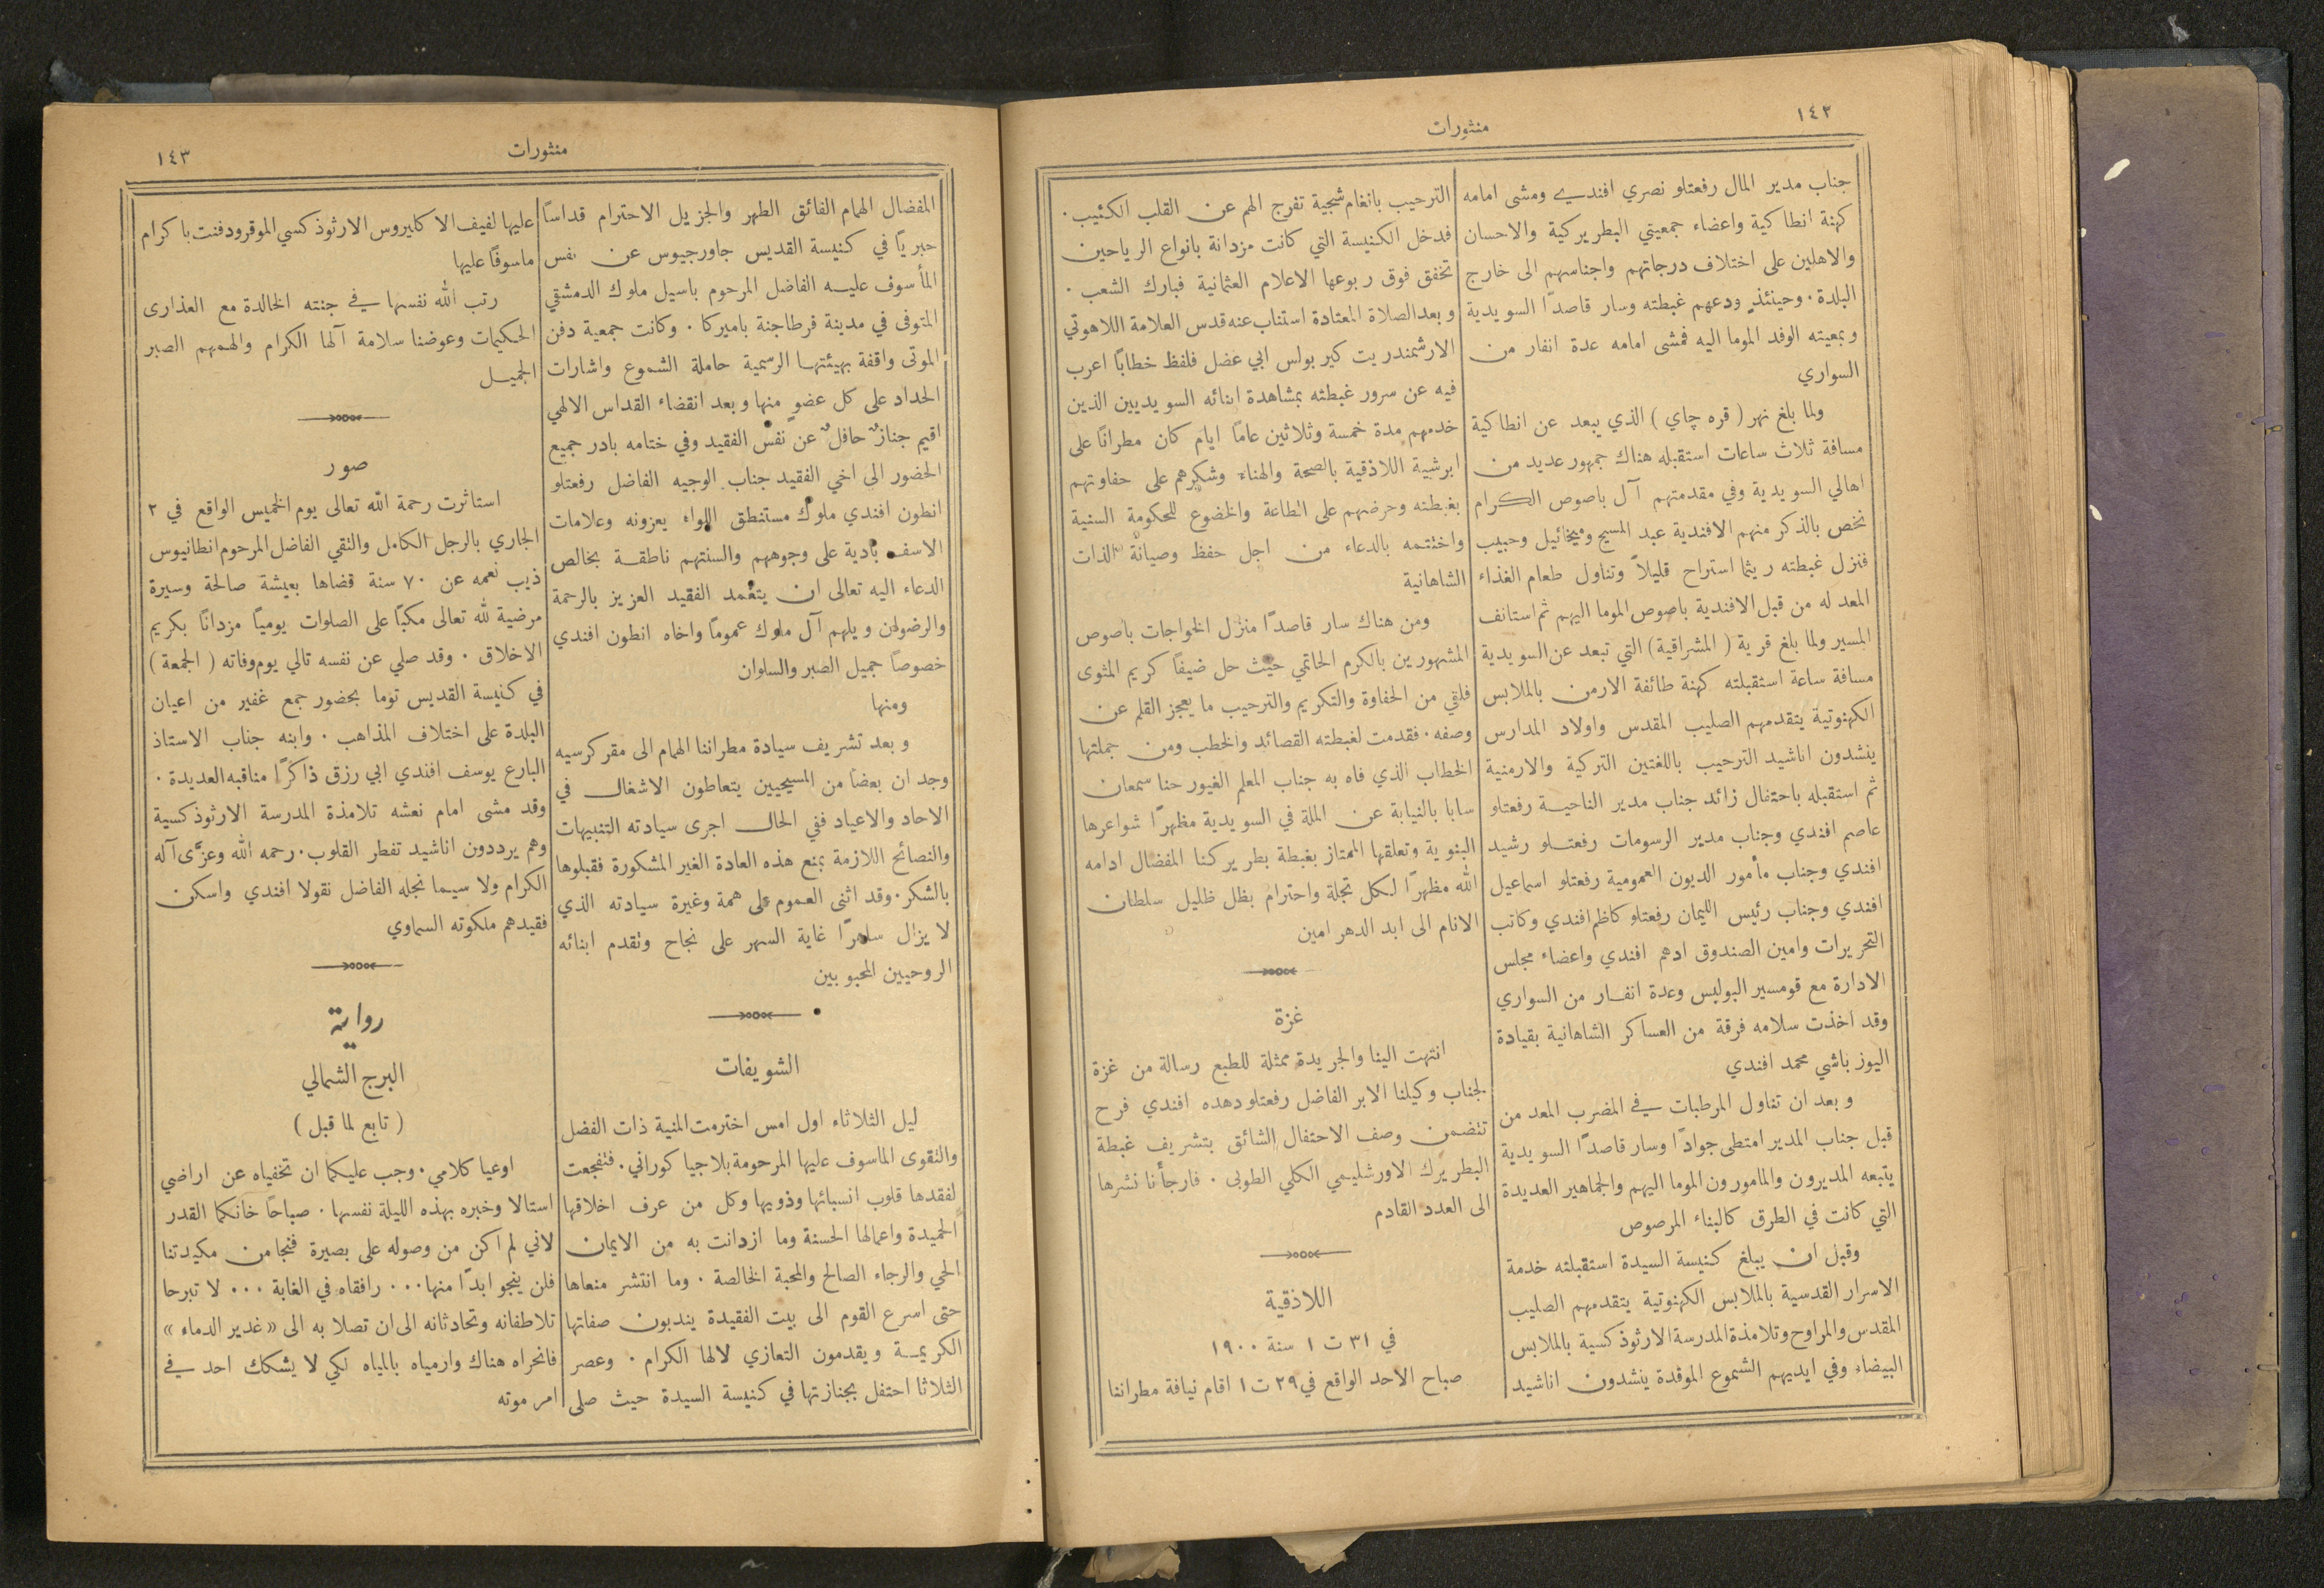 ١٤٢
منثورات
جناب مدير المال رفعتلو نصري افندي ومشى امامه
كهنة انطاكية واعضاء جمعيتي البطريركية والاحسان
والاهلين على اختلاف درجاتهم واجناسهم الى خارج
البلدة . وحينئذٍ ودعهم غبطته وسار قاصدًا السويدية
وبمعيته الوفد الموما اليه فمشى امامه عدة انفار من
السواري
ولما بلغ نهر ( قره چاي ) الذي يبعد عن انطاكية
مسافة ثلاث ساعات استقبله هناك جمهور عديد من
اهالي السويدية وفي مقدمتهم آل باصوص الكرام
نخص بالذكر منهم الافندية عبد المسيح وميخائيل وحبيب
فنزل غبطته ريثما استراح قليلاً وتناول طعام الغذاء
المعد له من قبل الافندية باصوص الموما اليهم ثم استانف
المسير ولما بلغ قرية ( المشراقية ) التي تبعد عن السويدية
مسافة ساعة استقبلته كهنة طائفة الارمن بالملابس
الكهنوتية يتقدمهم الصليب المقدس واولاد المدارس
ينشدون اناشيد الترحيب باللغتين التركية والارمنية
ثم استقبله باحتفال زائد جناب مدير الناحية رفعتلو
عاصم افندي وجناب مدير الرسومات رفعتلو رشيد
افندي وجناب مأمور الديون العمومية رفعتلو اسماعيل
افندي وجناب رئيس الليمان رفعتلو كاظم افندي وكاتب
التحريرات وامين الصندوق ادهم افندي واعضاء مجلس
الادارة مع قومسير البوليس وعدة انفار من السواري
وقد اخذت سلامه فرقة من العساكر الشاهانية بقيادة
اليوز باشي محمد افندي
وبعد ان تناول المرطبات في المضرب المعد من
قبل جناب المدير امتطى جوادًا وسار قاصدًا السويدية
يتبعه المديرون والمامورون الموما اليهم والجماهير العديدة
التي كانت في الطرق كالبناء المرصوص
وقبل ان يبلغ كنيسة السيدة استقبلته خدمة
الاسرار القدسية بالملابس الكهنوتية يتقدمهم الصليب
المقدس والمراوح وتلامذة المدرسة الارثوذكسية بالملابس
البيضاء وفي ايديهم الشموع الموقدة ينشدون اناشيد
الترحيب بانغام شجية تفرج الهم عن القلب الكئيب .
فدخل الكنيسة التي كانت مزدانة بانواع الرياحين
تخفق فوق ربوعها الاعلام العثمانية فبارك الشعب .
وبعد الصلاة المعتادة استناب عنه قدس العلامة اللاهوتي
الارشمندريت كير بولس ابي عضل فلفظ خطابًا اعرب
فيه عن سرور غبطته بمشاهدة ابنائه السويديين الذين
خدمهم مدة خمسة وثلاثين عامًا ايام كان مطرانًا على
ابرشية اللاذقية بالصحة والهناء وشكرهم على حفاوتهم
بغبطته وحرضهم على الطاعة والخضوع للحكومة السنية
واختتمه بالدعاء من اجل حفظ وصيانة الذات
الشاهانية
ومن هناك سار قاصدًا منزل الخواجات باصوص
المشهورين بالكرم الحاتمي حيث حل ضيفًا كريم المثوى
فلقي من الحفاوة والتكريم والترحيب ما يعجز القلم عن
وصفه . فقدمت لغبطته القصائد والخطب ومن جملتها
الخطاب الذي فاه به جناب المعلم الغيور حنا سمعان
سابا بالنيابة عن الملة في السويدية مظهرًا شواعرها
البنوية وتعلقها الممتاز بغبطة بطريركنا المفضال ادامه
الله مظهرًا لكل تجلة واحترام بظل ظليل سلطان
الانام الى ابد الدهر امين
غزة
انتهت الينا والجريدة ممثلة للطبع رسالة من غزة
لجناب وكيلنا الابر الفاضل رفعتلو دهده افندي فرح
تتضمن وصف الاحتفال الشائق بتشريف غبطة
البطريرك الاورشليمي الكلي الطوبى . فارجأنا نشرها
الى العدد القادم
اللاذقية
في ٣١ ت ١ سنة ١٩٠٠
صباح الاحد الواقع في ٢٩ ت ١ اقام نيافة مطراننا
منثورات
١٤٣
المفضال الهمام الفائق الطهر والجزيل الاحترام قداسًا
حبريًا في كنيسة القديس جاورجيوس عن نفس
المأسوف عليه الفاضل المرحوم باسيل ملوك الدمشقي
المتوفى في مدينة قرطاجنة باميركا . وكانت جمعية دفن
الموتى واقفة بهيئتها الرسمية حاملة الشموع واشارات
الحداد على كل عضوٍ منها وبعد انقضاء القداس الالهي
اقيم جنازٌ حافلٌ عن نفس الفقيد وفي ختامه بادر جميع
الحضور الى اخي الفقيد جناب الوجيه الفاضل رفعتلو
انطون افندي ملوك مستنطق اللواء يعزونه وعلامات
الاسف بادية على وجوههم والسنتهم ناطقة بخالص
الدعاء اليه تعالى ان يتغمد الفقيد العزيز بالرحمة
والرضوان ويلهم آل ملوك عمومًا واخاه انطون افندي
خصوصًا جميل الصبر والسلوان
ومنها
وبعد تشريف سيادة مطراننا الهمام الى مقر كرسيه
وجد ان بعضا من المسيحيين يتعاطون الاشغال في
الاحاد والاعياد ففي الحال اجرى سيادته التنبيهات
والنصائح اللازمة بمنع هذه العادة الغير المشكورة فقبلوها
بالشكر . وقد اثنى العموم على همة وغيرة سيادته الذي
لا يزال ساهرًا غاية السهر على نجاح وتقدم ابنائه
الروحيين المحبوبين
الشويفات
ليل الثلاثاء اول امس اخترمت المنية ذات الفضل
والتقوى الماسوف عليها المرحومة بلاجيا كوراني . فتفجعت
لفقدها قلوب انسبائها وذويها وكل من عرف اخلاقها
الحميدة واعمالها الحسنة وما ازدانت به من الايمان
الحي والرجاء الصالح والمحبة الخالصة . وما انتشر منعاها
حتى اسرع القوم الى بيت الفقيدة يندبون صفاتها
الكريمة ويقدمون التعازي لالها الكرام . وعصر
الثلاثا احتفل بجنازتها في كنيسة السيدة حيث صلى
عليها لفيف الاكليروس الارثوذكسي الموقر ودفنت باكرام
ماسوفًا عليها
رتب الله نفسها في جنته الخالدة مع العذارى
الحكيمات وعوضنا سلامة آلها الكرام والهمهم الصبر
الجميل
صور
استاثرت رحمة الله تعالى يوم الخميس الواقع في ٢
الجاري بالرجل الكامل والتقي الفاضل المرحوم انطانيوس
ذيب نعمه عن ٧٠ سنة قضاها بعيشة صالحة وسيرة
مرضية لله تعالى مكبًا على الصلوات يوميًا مزدانًا بكريم
الاخلاق . وقد صلي عن نفسه تالي يوم وفاته ( الجمعة )
في كنيسة القديس توما بحضور جمع غفير من اعيان
البلدة على اختلاف المذاهب . وابنه جناب الاستاذ
البارع يوسف افندي ابي رزق ذاكرًا مناقبه العديدة .
وقد مشى امام نعشه تلامذة المدرسة الارثوذكسية
وهم يرددون اناشيد تفطر القلوب . رحمه الله وعزَّى آله
الكرام ولا سيما نجله الفاضل نقولا افندي واسكن
فقيدهم ملكوته السماوي
رواية
البرج الشمالي
( تابع لما قبل )
اوعيا كلامي . وجب عليكما ان تخفياه عن اراضي
استالا وخبره بهذه الليلة نفسها . صباحًا خانكما القدر
لاني لم اكن من وصوله على بصيرة فنجا من مكيدتنا
فلن ينجو ابدًا منها ... رافقاه في الغابة ... لا تبرحا
تلاطفانه وتحادثانه الى ان تصلا به الى « غدير الدماء »
فانحراه هناك وارمياه بالمياه لكي لا يشكك احد في
امر موته